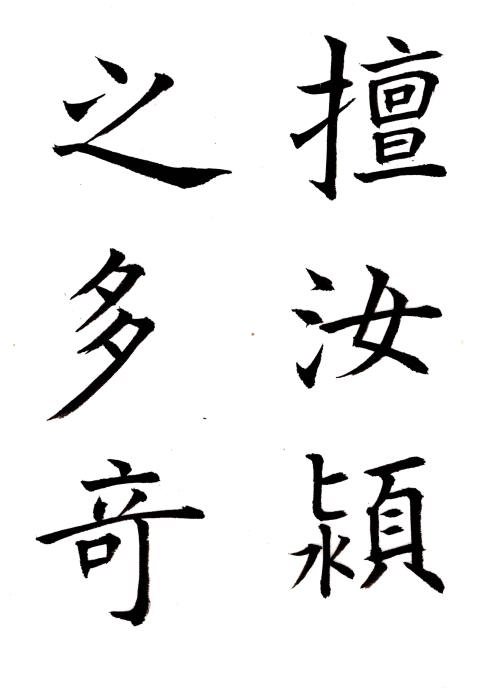 擅汝潁
之多奇